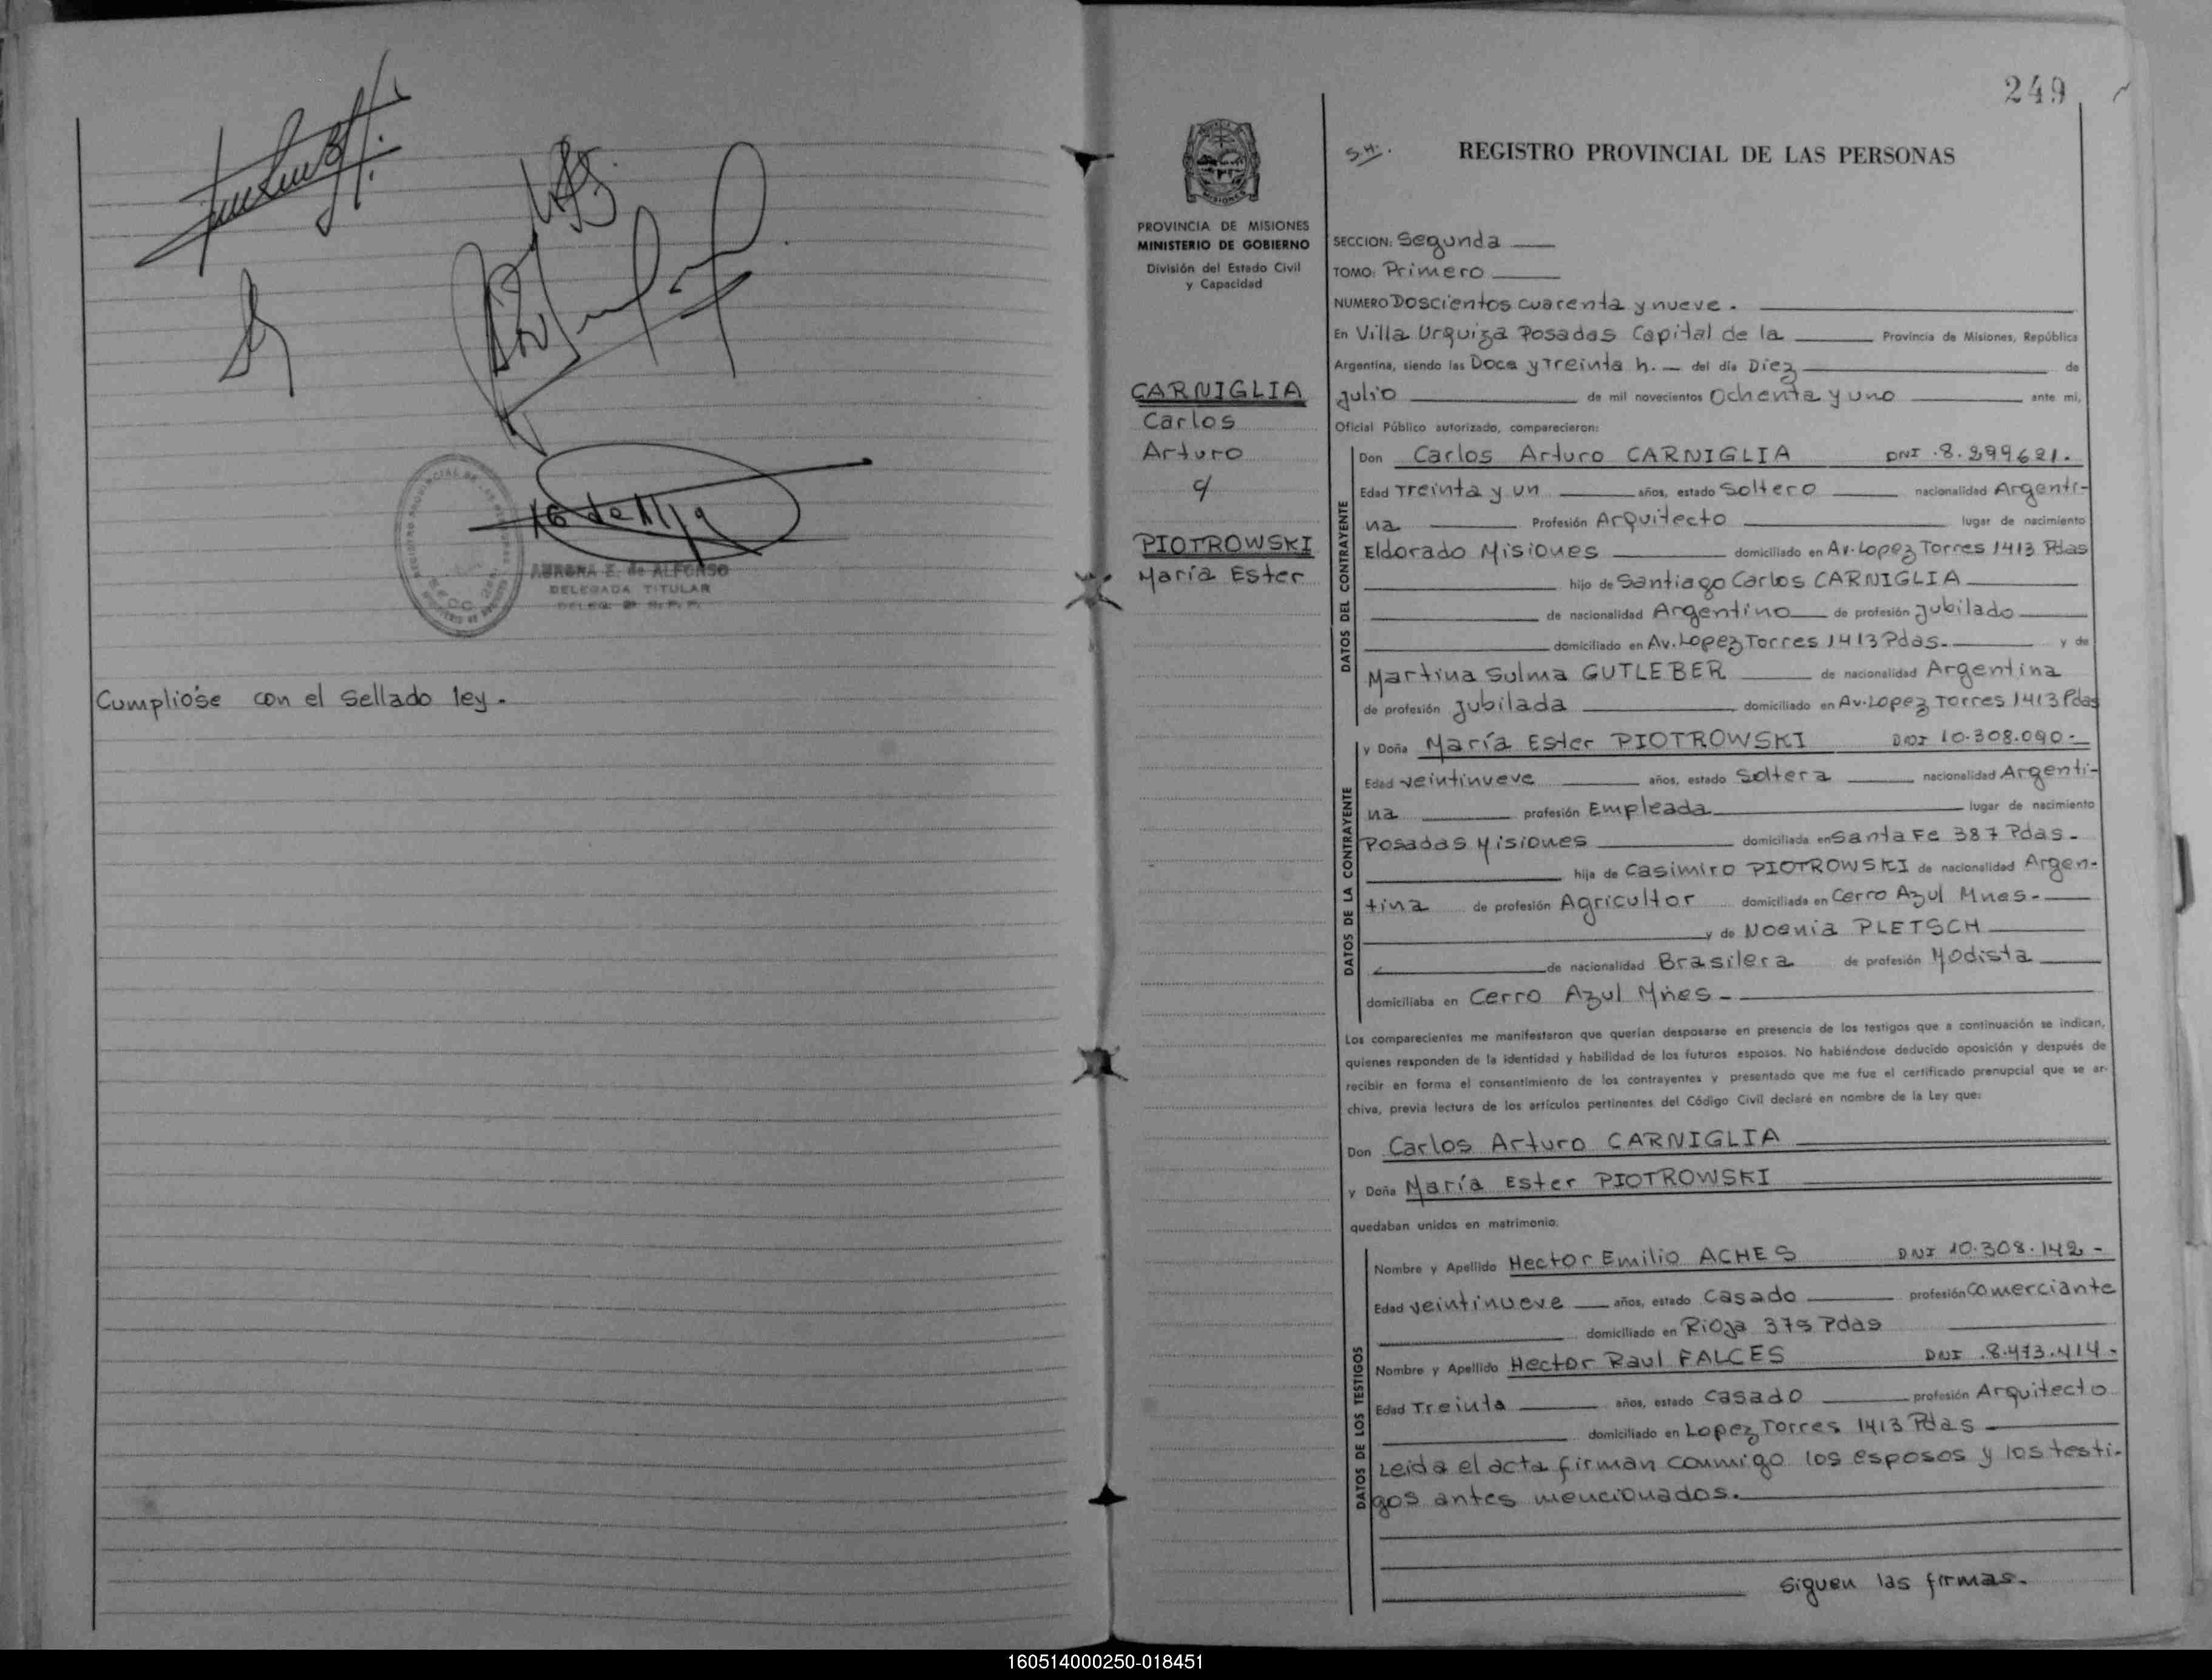 AURORA E. de ALFONSO
DELEGADA TITULAR
Cumplióse con el Sellado ley.
249
PROVINCIA DE MISIONES
MINISTERIO DE GOBIERNO
División del Estado Civil
y Capacidad
CARNIGLIA
Carlos
Arturo
c/
PIOTROWSKI
María Ester
S.H.
REGISTRO PROVINCIAL DE LAS PERSONAS
SECCION: Segunda
TOMO: Primero
NUMERO Doscientos cuarenta y nueve.
En Villa Urquiza Posadas Capital de la Provincia de Misiones, República
Argentina, siendo las Doce y Treinta h. del día Diez de
Julio de mil novecientos Ochenta y uno ante mi,
Oficial Público autorizado, comparecieron:
DATOS DEL CONTRAYENTE
Don Carlos Arturo CARNIGLIA DNI .8.299621.
Edad Treinta y un años, estado Soltero nacionalidad Argenti-
na Profesión Arquitecto lugar de nacimiento
Eldorado Misiones domiciliado en Av. Lopez Torres 1413 Pdas
hijo de Santiago Carlos CARNIGLIA
de nacionalidad Argentino de profesión Jubilado
domiciliado en Av. Lopez Torres 1413 Pdas. y de
Martina Sulma GUTLEBER de nacionalidad Argentina
de profesión Jubilada domiciliado en Av. Lopez Torres 1413 Pdas
DATOS DE LA CONTRAYENTE
y Doña María Ester PIOTROWSKI DNI 10.308.090.
Edad veintinueve años, estado Soltera nacionalidad Argenti-
na profesión Empleada lugar de nacimiento
Posadas Misiones domiciliada en Santa Fe 387 Pdas.
hija de Casimiro PIOTROWSKI de nacionalidad Argen-
tina de profesión Agricultor domiciliada en Cerro Azul Mnes.
y de Noenia PLETSCH
de nacionalidad Brasilera de profesión Modista
domiciliaba en Cerro Azul Mnes.
Los comparecientes me manifestaron que querían desposarse en presencia de los testigos que a continuación se indican,
quienes responden de la identidad y habilidad de los futuros esposos. No habiéndose deducido oposición y después de
recibir en forma el consentimiento de los contrayentes y presentado que me fue el certificado prenupcial que se ar-
chiva, previa lectura de los artículos pertinentes del Código Civil declaré en nombre de la Ley que:
Don Carlos Arturo CARNIGLIA
y Doña María Ester PIOTROWSKI
quedaban unidos en matrimonio.
DATOS DE LOS TESTIGOS
Nombre y Apellido Hector Emilio ACHES DNI 10.308.142.
Edad veintinueve años, estado Casado profesión Comerciante
domiciliado en Rioja 375 Pdas
Nombre y Apellido Hector Raul FALCES DNI .8.473.414.
Edad Treinta años, estado Casado profesión Arquitecto
domiciliado en Lopez Torres 1413 Pdas
Leida el acta firman conmigo los esposos y los testi-
gos antes mencionados.
Siguen las firmas.
160514000250-018451